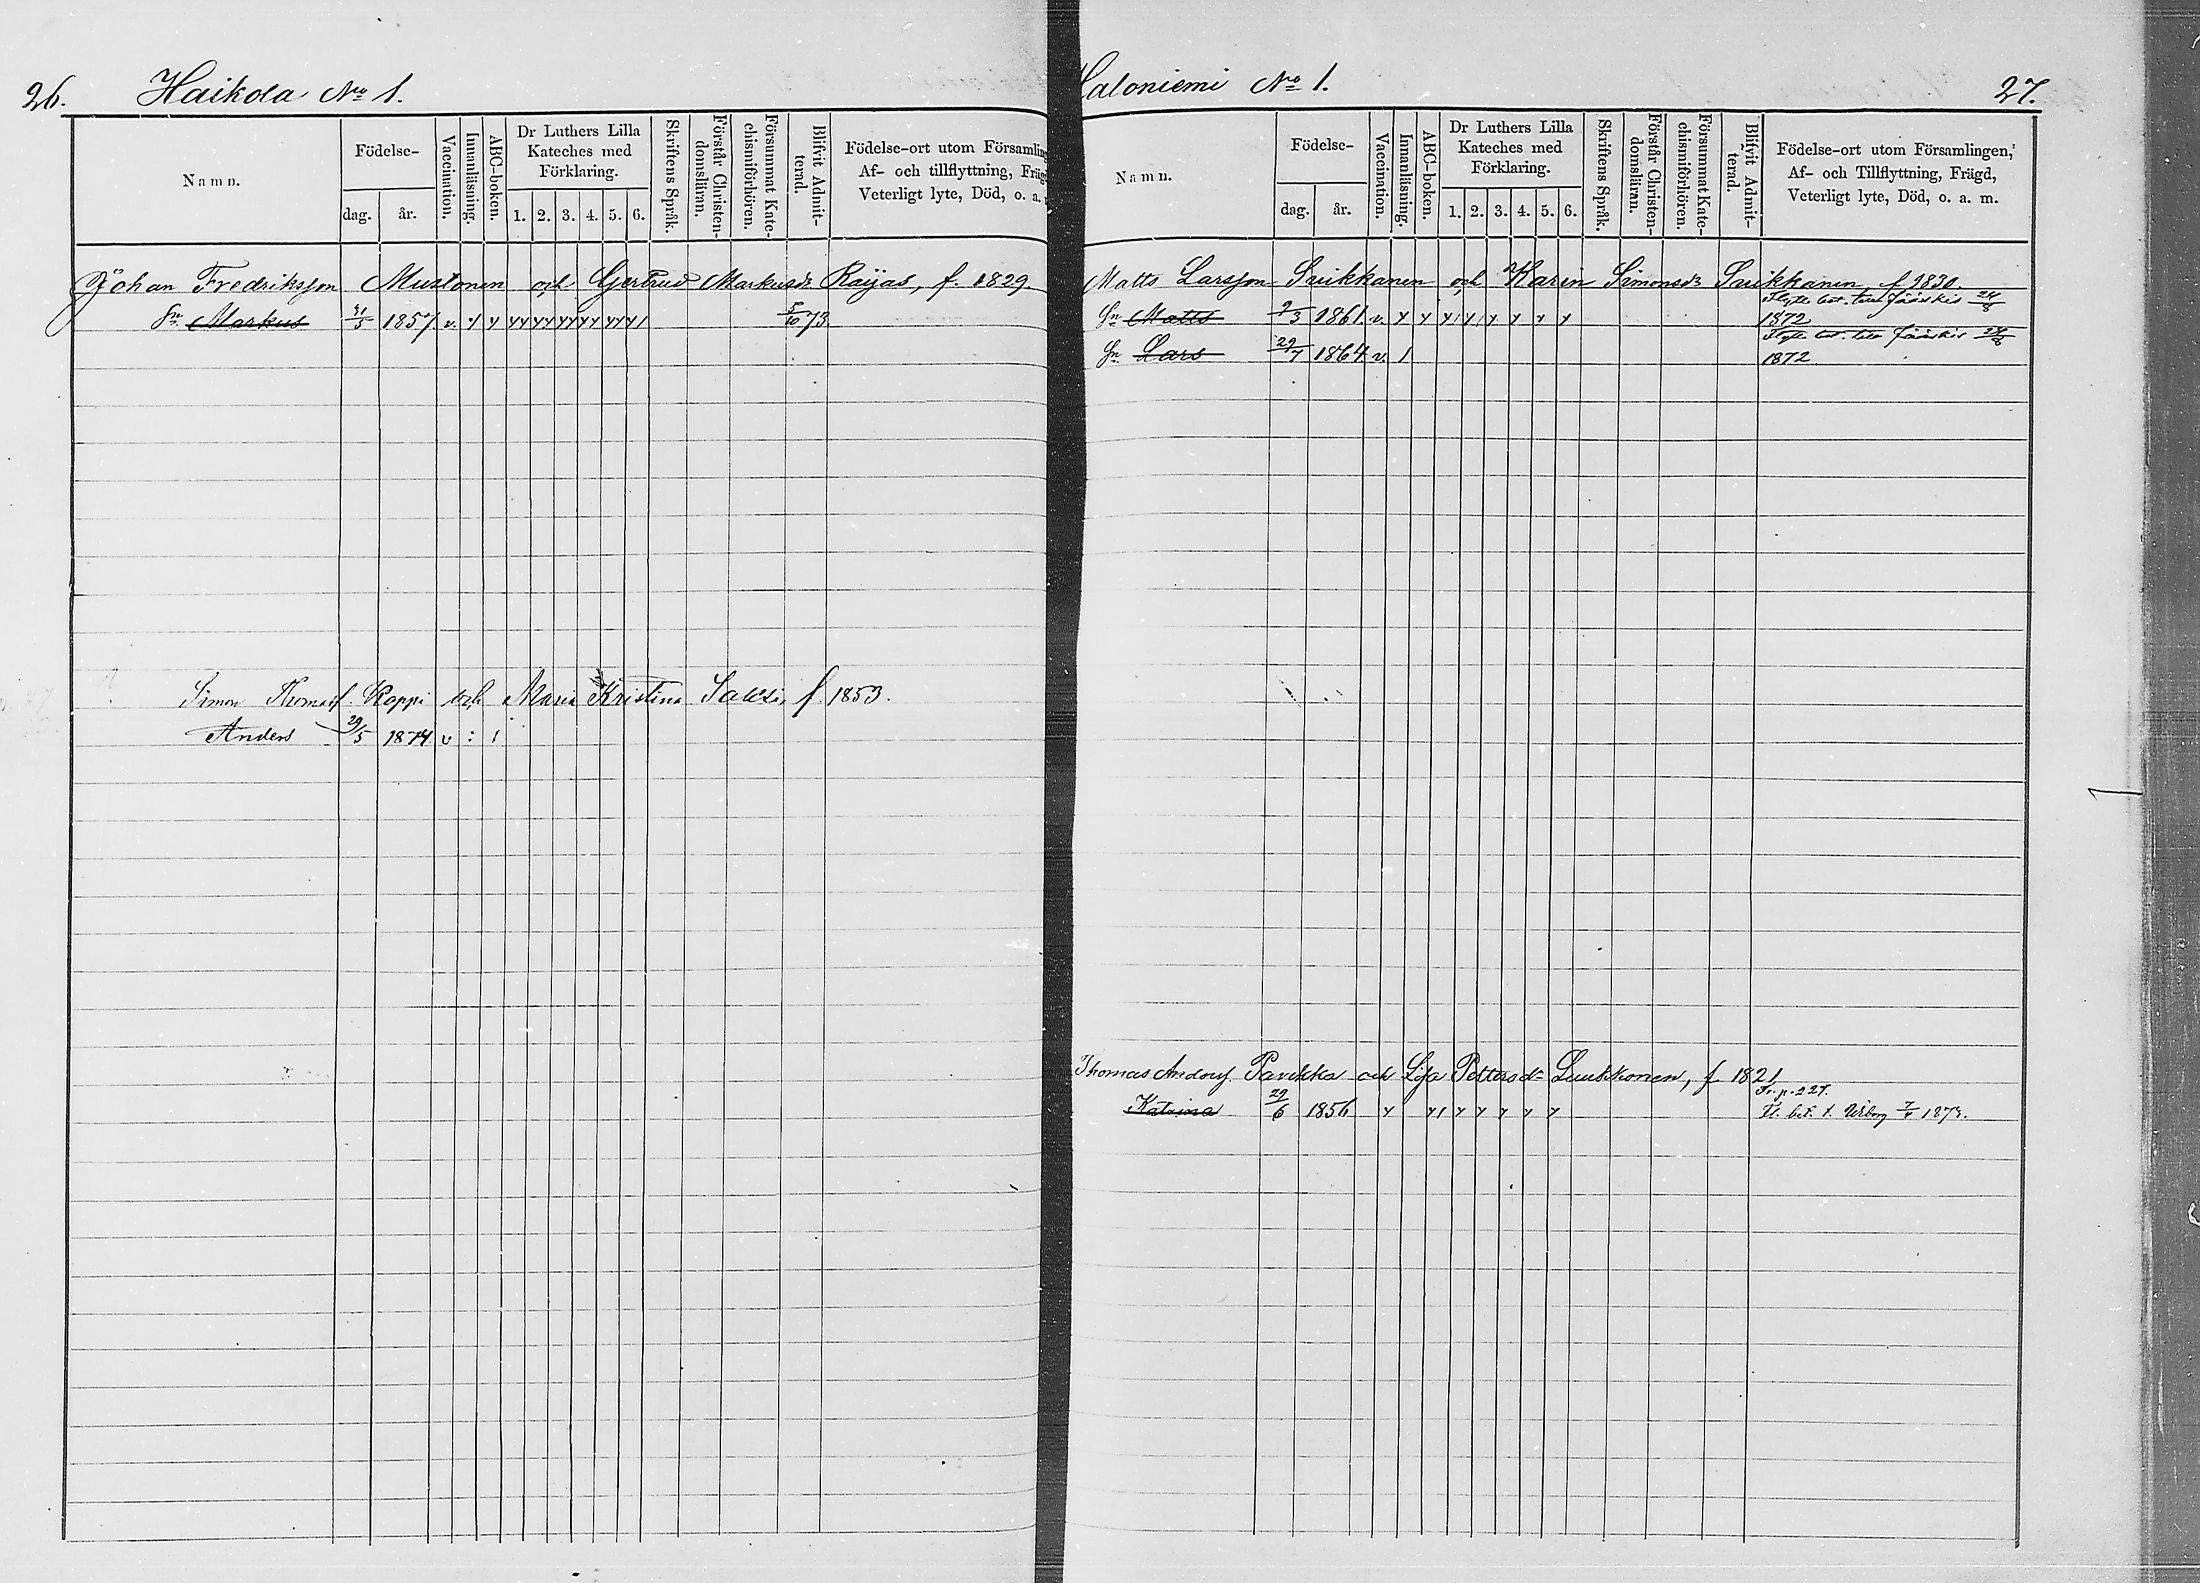 26. Haikola No 1.
Namn.
Födelse-
dag. år.
Vaccination.
Innanläsning.
ABC-boken.
Dr Luthers Lilla Kateches med Förklaring.
1. 2. 3. 4. 5. 6.
Skriftens Språk.
Förstår Christendomsläran.
Försummat Katechismiförhören.
Blifvit Admitterad.
Födelse-ort utom Församling
Af- och tillflyttning, Fräg
Veterligt lyte, Död, o. a.
Johan Fredriksson Mustonen och Gertrud Markusdr Raijas, f. 1829.
Sn Markus 31/5 1857 v. y y yy yy yy yy yy y1 5/10 73.
Simon Thomasf. Roppi och Maria Kristina Saksi f. 1853.
Anders 29/5 1874 v : 1
aloniemi No 1. 27.
Namn.
Födelse-
dag. år.
Vaccination.
Innanläsning.
ABC-boken.
Dr Luthers Lilla Kateches med Förklaring.
1. 2. 3. 4. 5. 6.
Skriftens Språk.
Förstår Christendomsläran.
Försummat Katechismiförhören.
Blifvit Admitterad.
Födelse-ort utom Församlingen,
Af- och Tillflyttning, Frägd,
Veterligt lyte, Död, o. a. m.
Matts Larsson Suikkanen och Karin Simonsdr Suikkanen, f. 1830.
Sn Matts /3 1861 v. y y y1 y1 y y y y 1872
Sn Lars 29/7 1864 v. 1 1872
Thomas Andersf. Pavikka och Lisa Pettersdr Luukkonen, f. 1821
Fr. p. 227.
Katrina 29/6 1856 y y1 y y y y y Fl. bet. t. Wiborg 1873.